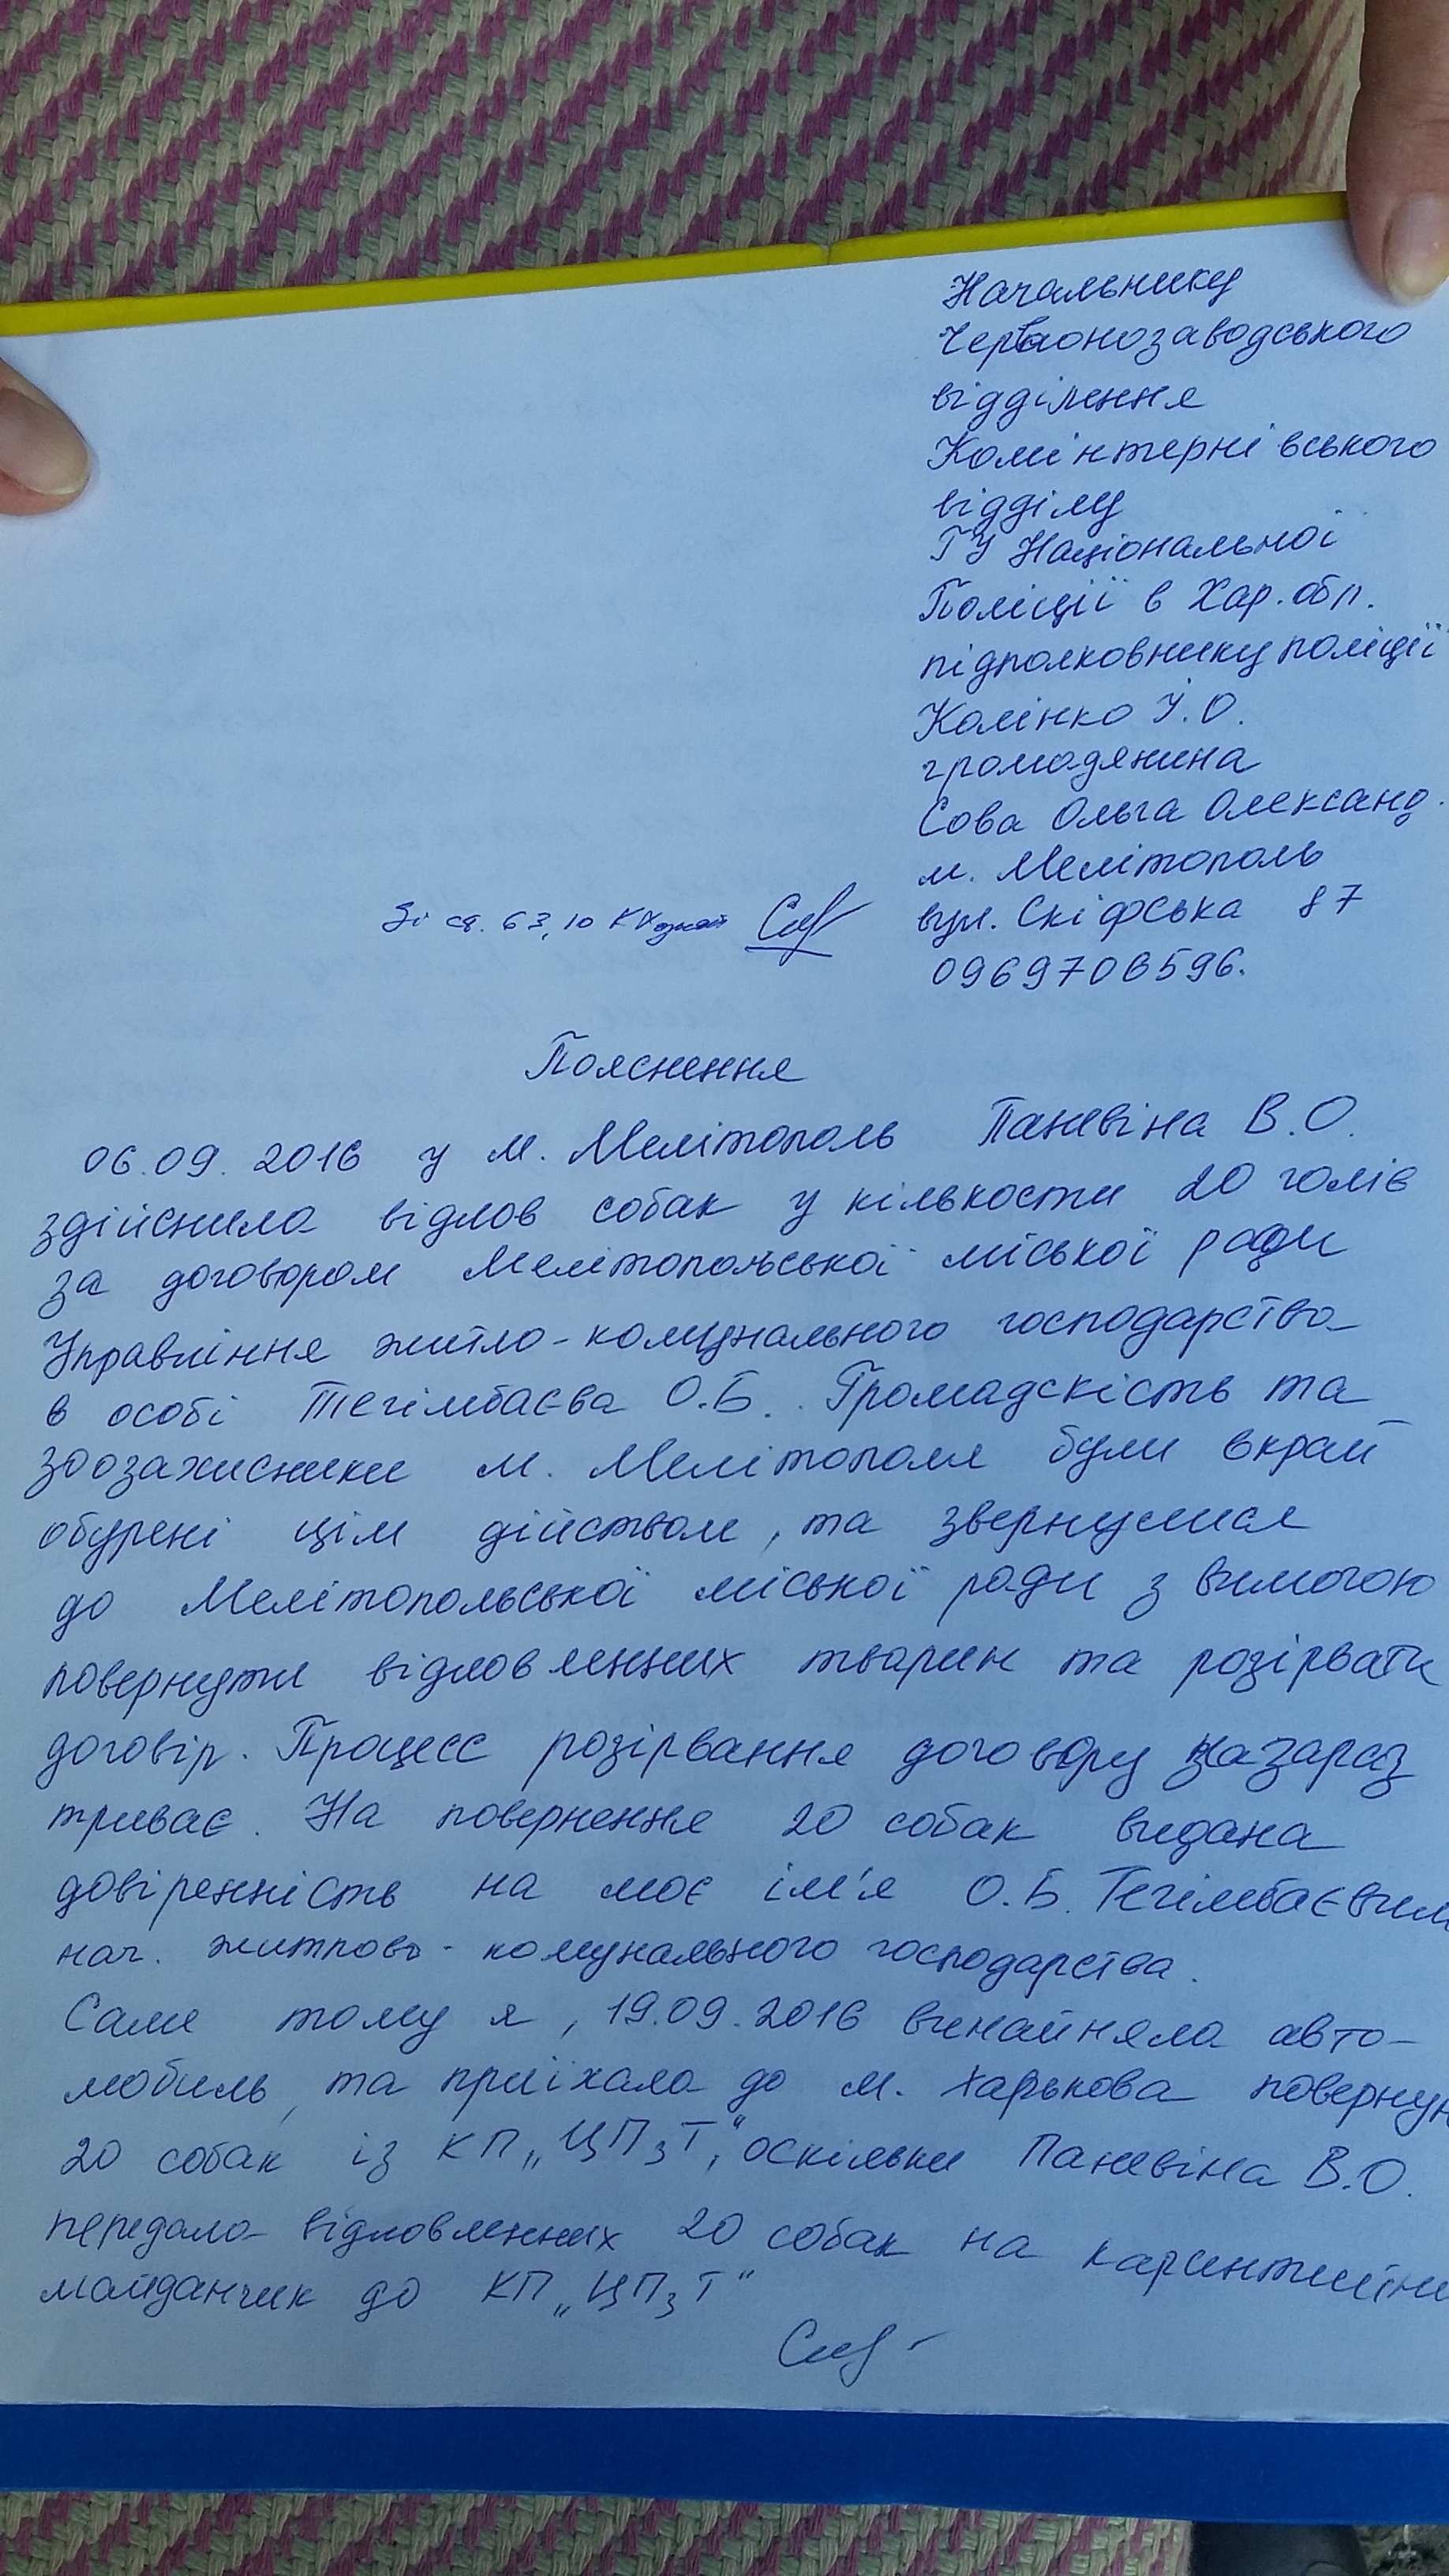 Начальнику
Червонозаводського
відділення
Комінтернівського
відділу
ГУ Національної
Поліції в Хар. обл.
підполковнику поліції
Калінко І.О.
громадянина
Сова Ольга Олександ.
м. Мелітополь
вул. Скіфська 87
0969706596.
Зі ст. 63, 10
Пояснення
06.09.2016 у м. Мелітополь Паневіна В.О.
здійснила відлов собак у кількости 20 голів
за договором Мелітопольської міської ради
Управління житло-комунального господарства
в особі Тегімбаєва О.Б.. Громадскість та
зоозахисники м. Мелітополя були вкрай
обурені цім дійством, та звернулися
до Мелітопольської міської ради з вимогою
повернути відловленних тварин та розірвати
договір. Процесс розірвання договору
триває. На повернення 20 собак видана
довіренність на моє ім'я О.Б. Тегімбаєвим
нач. житлово-комунального господарства.
Саме тому я, 19.09.2016 винайняла авто-
мобиль, та приїхала до м. Харькова
20 собак із КП „ЦПзТ", оскільки Паневіна В.О.
передала відловленних 20 собак на
майданчик до КП „ЦПзТ"